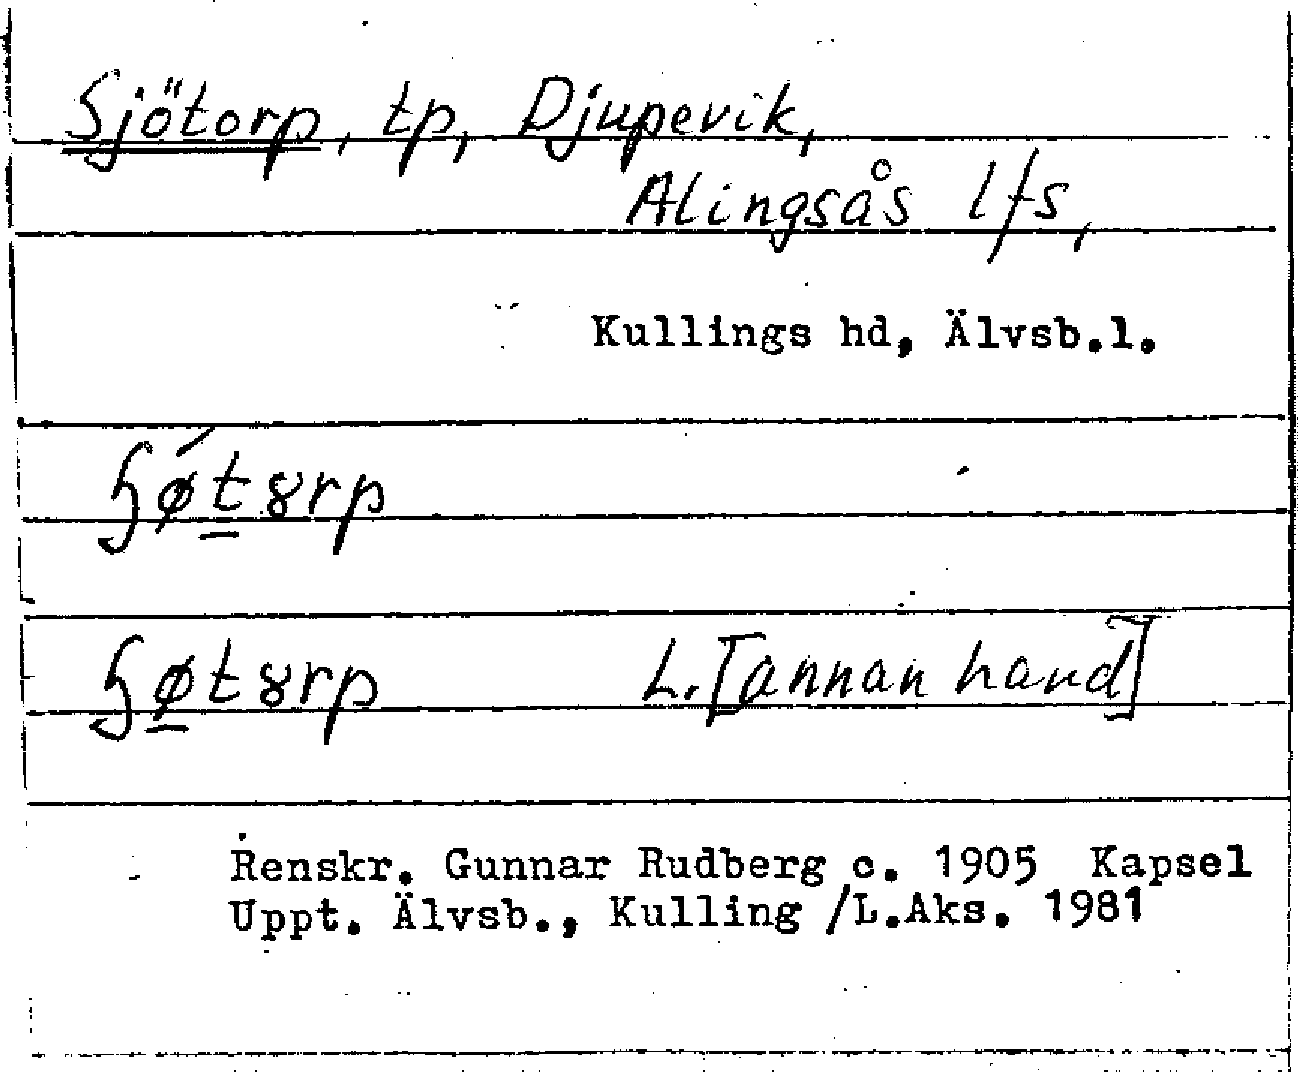 Sjötorp, tp, Djupevik,
Alingsås lfs,
Kullings hd, Älvsb.l.
ɧǿt̲ȣrp
ɧø̲tȣrp L. [annan hand]
Renskr. Gunnar Rudberg c. 1905 Kapsel
Uppt. Älvsb., Kulling /L.Aks. 1981